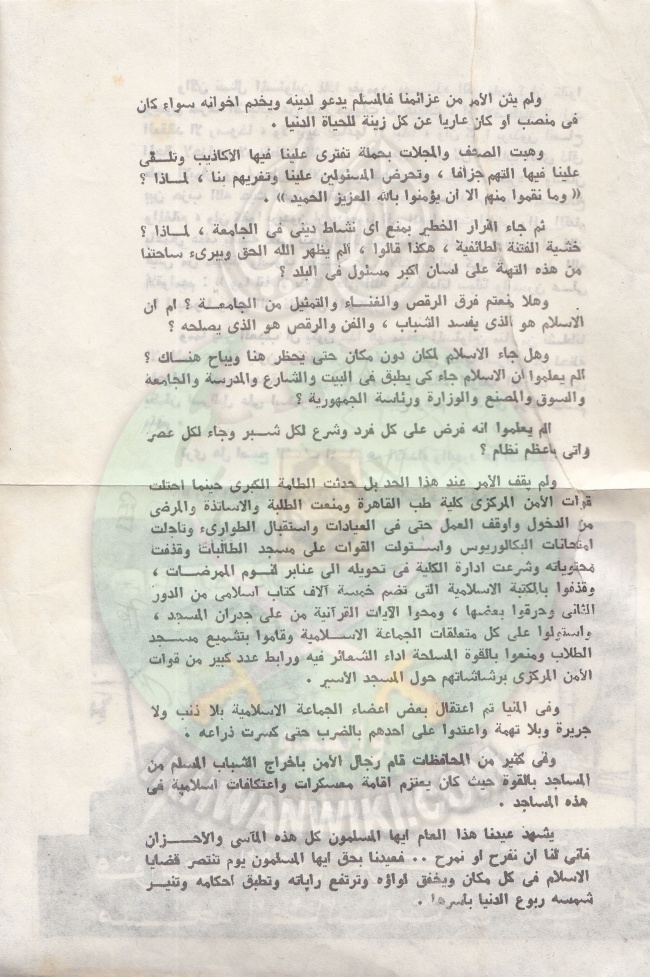 ولم يثن الأمر من عزائمنا فالمسلم يدعو لدينه ويخدم اخوانه سواء كان
فى منصب او كان عاريا عن كل زينة للحياة الدنيا .
وهبت الصحف والمجلات بحملة تفترى علينا فيها الاكاذيب وتلقى
علينا فيها التهم جزافا ، وتحرض المسئولين علينا وتغريهم بنا ، لماذا ؟
« وما نقموا منهم الا ان يؤمنوا بالله العزيز الحميد » .
ثم جاء القرار الخطير بمنع اى نشاط دينى فى الجامعة ، لماذا ؟
خشية الفتنة الطائفية ، هكذا قالوا ، الم يظهر الله الحق ويبرىء ساحتنا
من هذه التهمة على لسان أكبر مسئول فى البلد ؟
وهلا منعتم فرق الرقص والغناء والتمثيل من الجامعة ؟ ام ان
الاسلام هو الذى يفسد الشباب ، والفن والرقص هو الذى يصلحه ؟
وهل جاء الاسلام لمكان دون مكان حتى يحظر هنا ويباح هناك ؟
الم يعلموا ان الاسلام جاء كى يطبق فى البيت والشارع والمدرسة والجامعة
والسوق والمصنع والوزارة ورئاسة الجمهورية ؟
الم يعلموا انه فرض على كل فرد وشرع لكل شبر وجاء لكل عصر
واتى باعظم نظام ؟
ولم يقف الأمر عند هذا الحد بل حدثت الطامة الكبرى حينما احتلت
قوات الأمن المركزى كلية طب القاهرة ومنعت الطلبة والاساتذة والمرضى
من الدخول واوقف العمل حتى فى العيادات واستقبال الطوارىء وتاجلت
امتحانات البكالوريوس واستولت القوات على مسجد الطالبات وقذفت
محتوياته وشرعت ادارة الكلية فى تحويله الى عنابر لنوم الممرضات ،
وقذفوا بالمكتبة الاسلامية التى تضم خمسة آلاف كتاب اسلامى من الدور
الثانى وحرقوا بعضها ، ومحوا الآيات القرآنية من على جدران المسجد ،
واستولوا على كل متعلقات الجماعة الاسلامية وقاموا بتشميع مسجد
الطلاب ومنعوا بالقوة المسلحة اداء الشعائر فيه ورابط عدد كبير من قوات
الأمن المركزى برشاشاتهم حول المسجد الأسير .
وفى المنيا تم اعتقال بعض اعضاء الجماعة الاسلامية بلا ذنب ولا
جريرة وبلا تهمة واعتدوا على احدهم بالضرب حتى كسرت ذراعه .
وفى كثير من المحافظات قام رجال الأمن باخراج الشباب المسلم من
المساجد بالقوة حيث كان يعتزم اقامة معسكرات واعتكافات اسلامية فى
هذه المساجد .
يشهد عيدنا هذا العام ايها المسلمون كل هذه المآسى والاحزان
فانى لنا ان نفرح او نمرح .. فعيدنا بحق ايها المسلمون يوم تنتصر قضايا
الاسلام فى كل مكان ويخفق لواؤه وترتفع راياته وتطبق احكامه وتنير
شمسه ربوع الدنيا باسرها .
IKHWANWIKI.COM